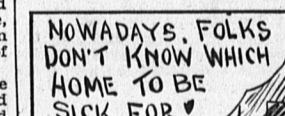 NOWADAYS. FOLKS
DON'T KNOW WHICH
HOME TO BE
SICK FOR